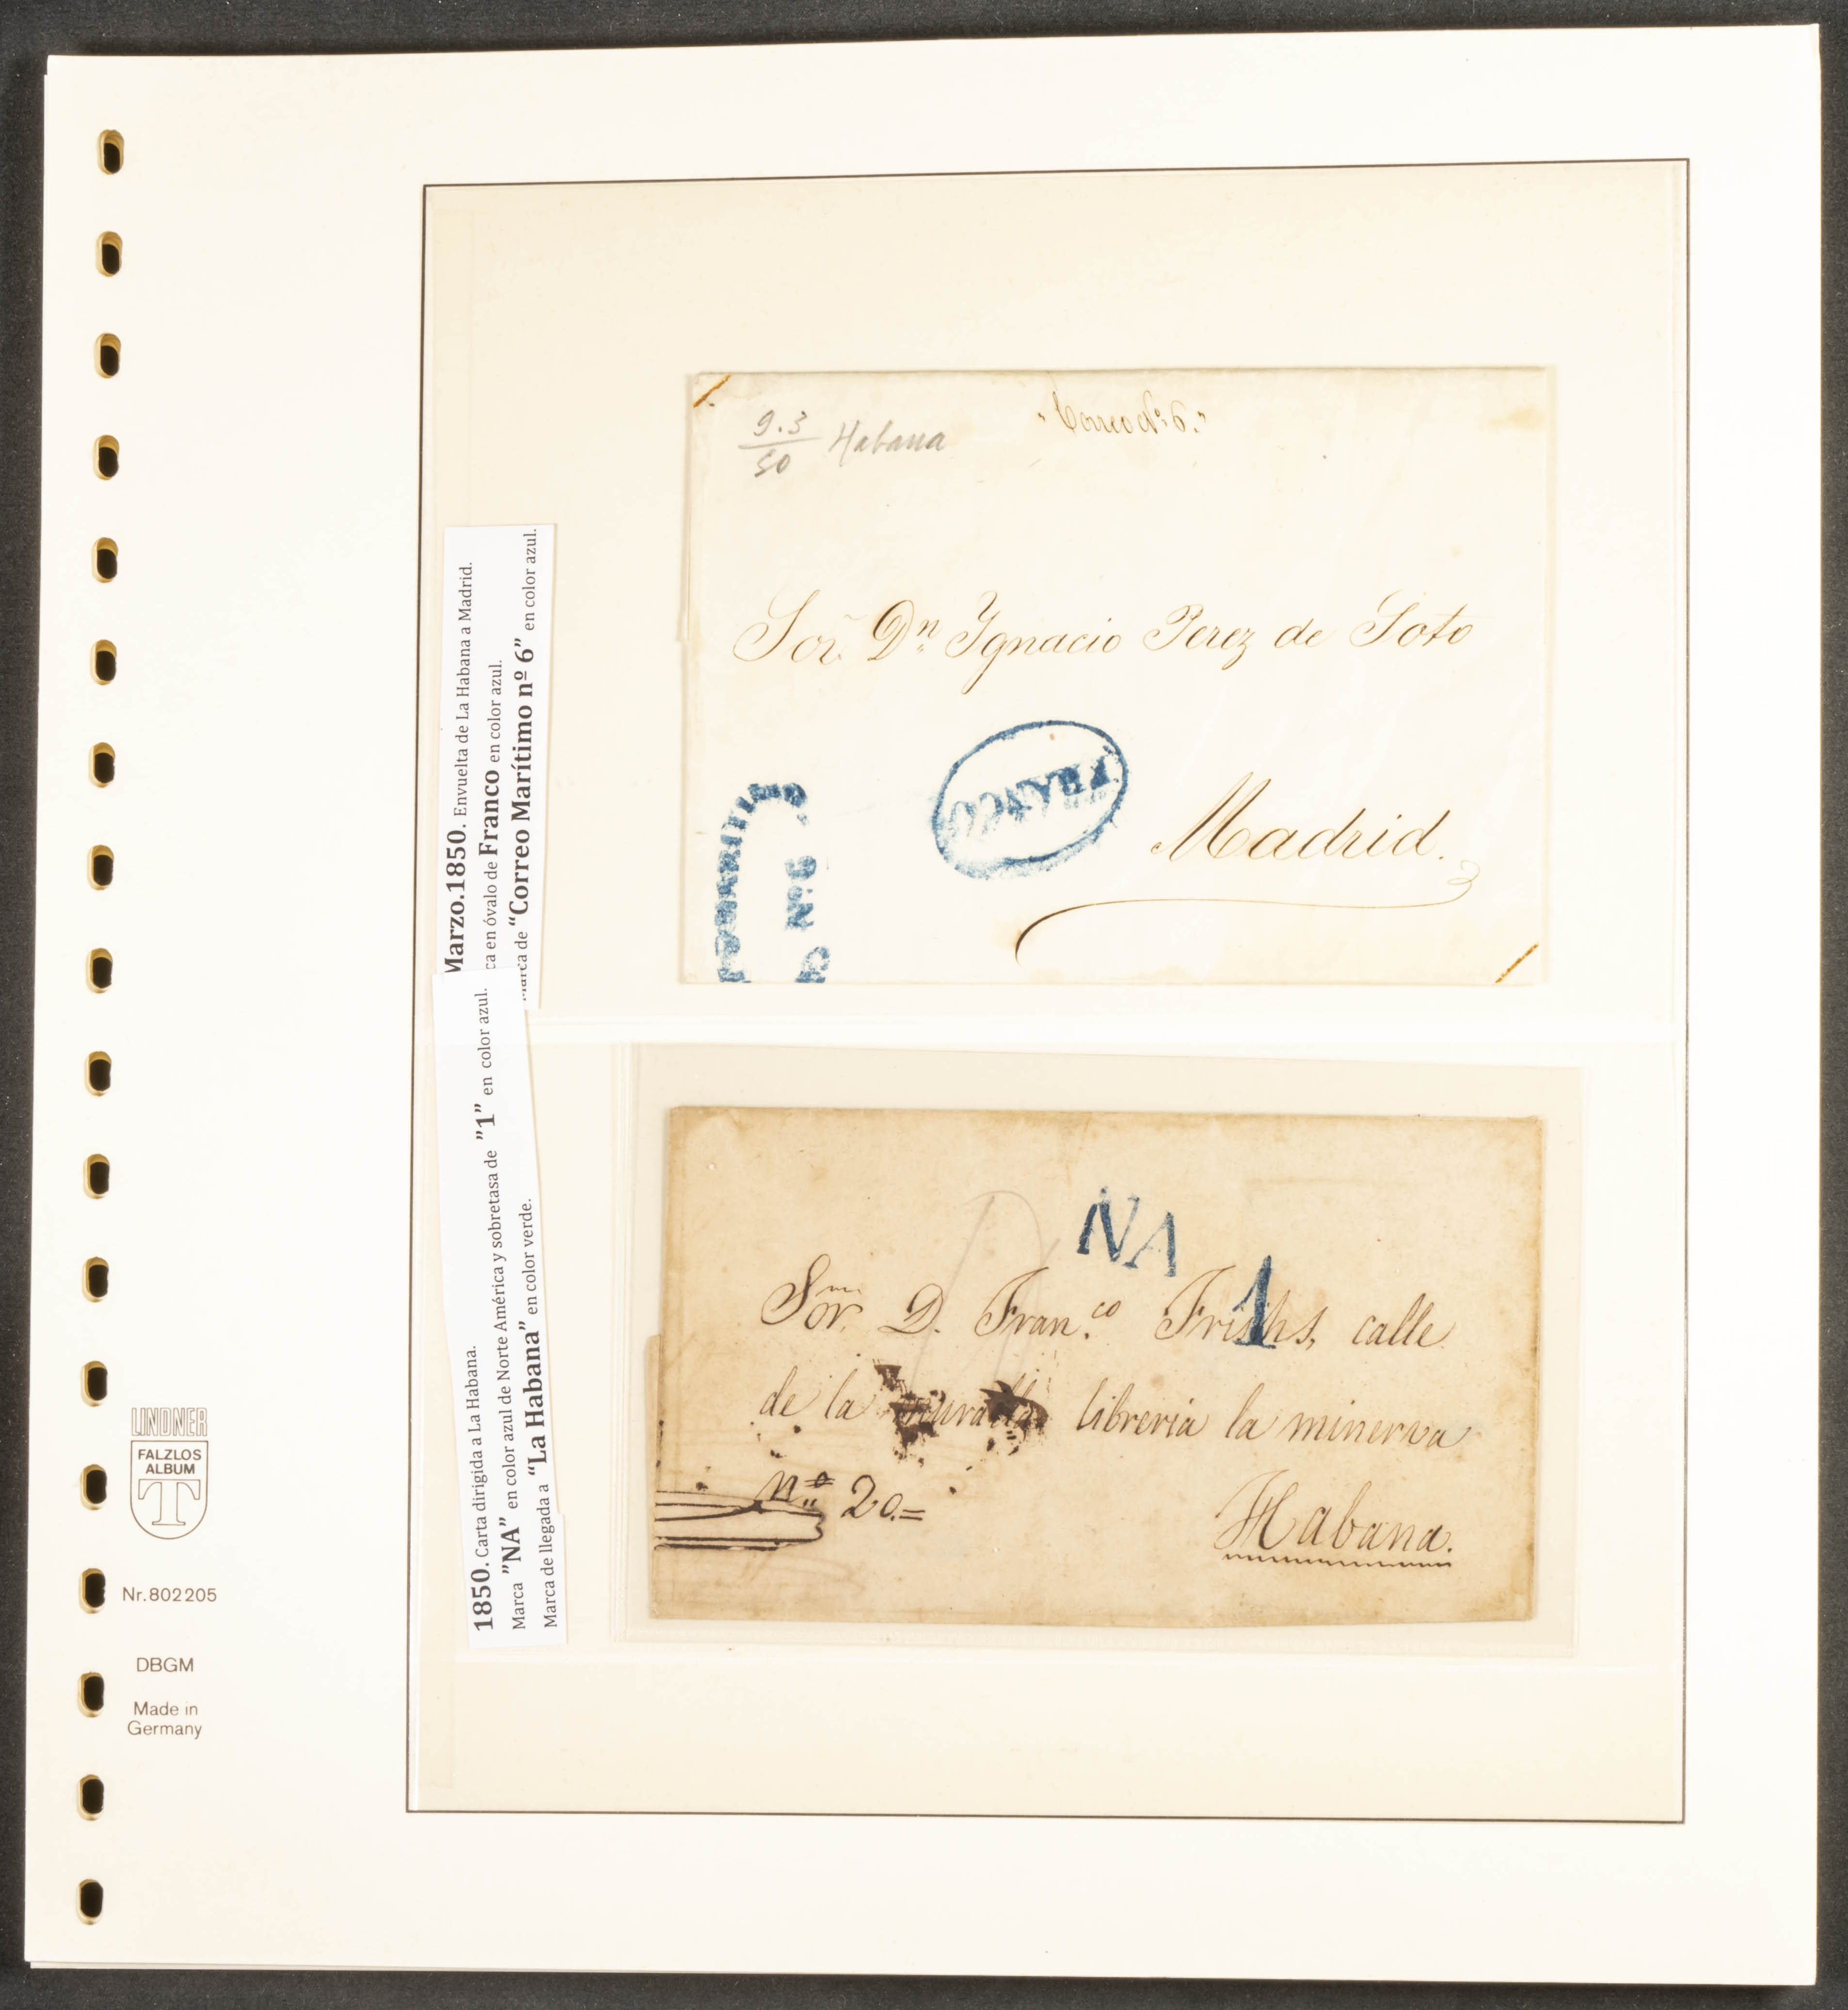 9.3
50 Habana
"Correo Nº 6."
Sor. Dn Ygnacio Perez de Soto
FRANCO
Madrid.
Nº 6
Marzo.1850. Envuelta de La Habana a Madrid.
ca en óvalo de Franco en color azul.
Marca de “Correo Marítimo nº 6” en color azul.
NA
1
Sor. D. Fran.co Friths, calle
de la libreria la minerva
n.º 20.=
Habana.
1850. Carta dirigida a La Habana.
Marca ”NA” en color azul de Norte América y sobretasa de ”1” en color azul.
Marca de llegada a “La Habana” en color verde.
LINDNER
FALZLOS
ALBUM
T
Nr.802205
DBGM
Made in
Germany